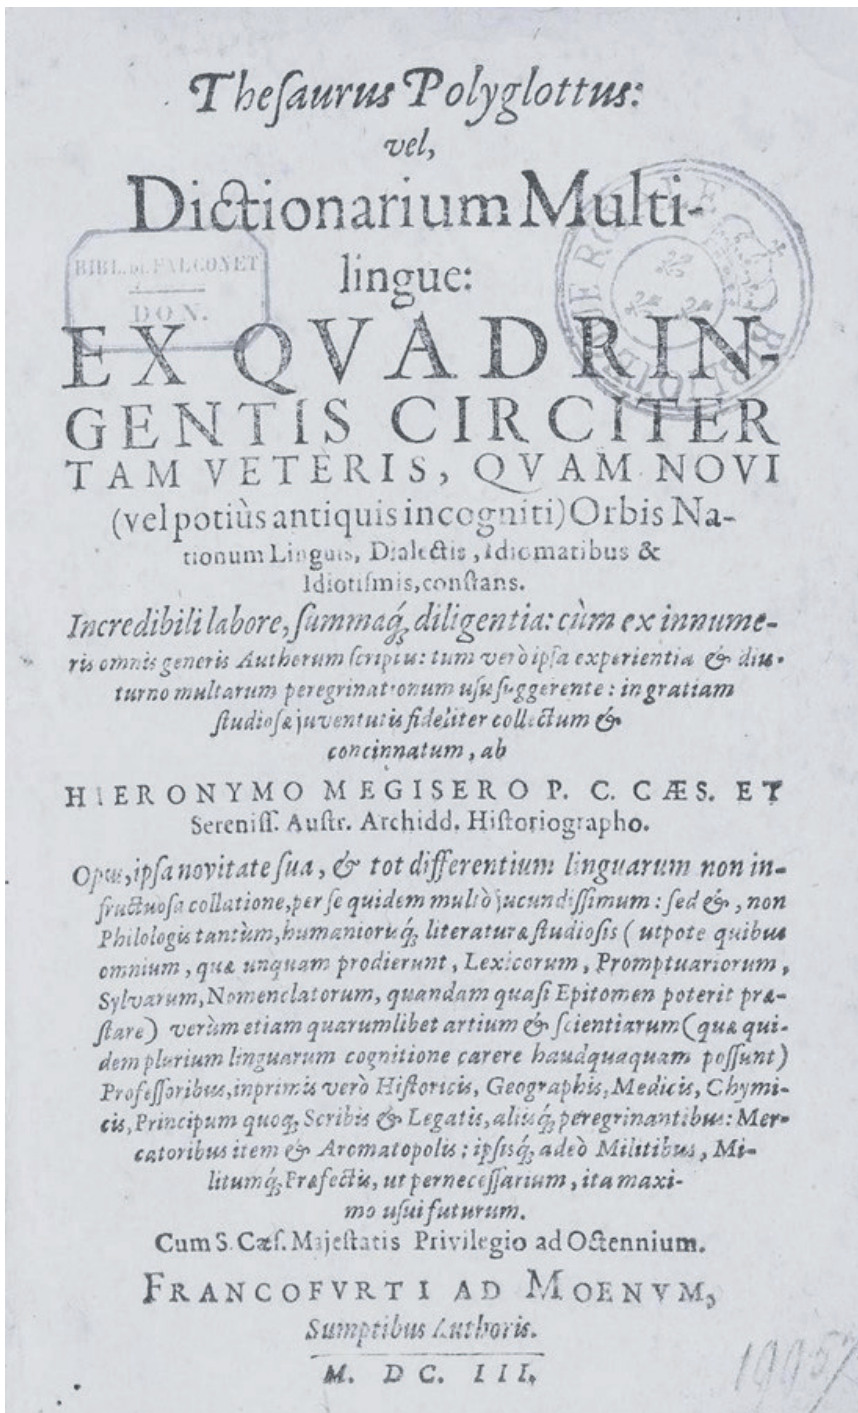 Theſaurus Polyglottus:
vel,
Dictionarium Multi-
lingue:
BIBL. DE FALCONET
DON.
EX QVADRIN-
GENTIS CIRCITER
TAM VETERIS, QVAM NOVI
(vel potiùs antiquis incogniti) Orbis Na-
tionum Linguis, Dialectis, Idiomatibus &
Idiotiſmis, conſtans.
Incredibili labore, ſummaq́; diligentia: cùm ex innume-
ris omnis generis Authorum ſcriptis: tum verò ipſa experientia & diu-
turno multarum peregrinationum uſu ſuggerente: in gratiam
ſtudioſæ juventutis fideliter collectum &
concinnatum, ab
HIERONYMO MEGISERO P. C. CÆS. ET
Sereniſſ. Auſtr. Archidd. Hiſtoriographo.
Opus, ipſa novitate ſua, & tot differentium linguarum non in-
fructuoſa collatione, per ſe quidem multò jucundiſſimum: ſed &, non
Philologis tantùm, humanioriſq́; literaturæ ſtudioſis (utpote quibus
omnium, quæ unquam prodierunt, Lexicorum, Promptuariorum,
Sylvarum, Nomenclatorum, quandam quaſi Epitomen poterit præ-
ſtare) verùm etiam quarumlibet artium & ſcientiarum (quæ qui-
dem plurium linguarum cognitione carere haudquaquam poſſunt)
Profeſſoribus, inprimis verò Hiſtoricis, Geographis, Medicis, Chymi-
cis, Principum quoq; Scribis & Legatis, aliiſq́; peregrinantibus: Mer-
catoribus item & Aromatopolis: ipſiſq́; adeò Militibus, Mi-
litumq́; Præfectis, ut perneceſſarium, ita maxi-
mo uſui futurum.
Cum S. Cæſ. Majeſtatis Privilegio ad Octennium.
FRANCOFVRTI AD MOENVM,
Sumptibus Authoris.
M. DC. III.